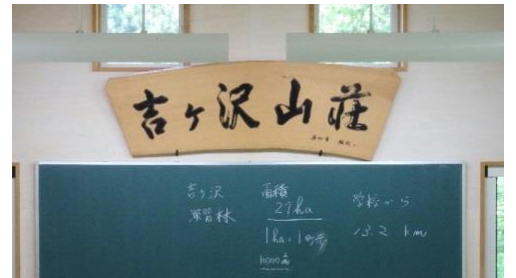 吉ヶ沢山荘
吉ヶ沢
演習林
面積
27ha
1ha・1町歩
学校から
13.2 km